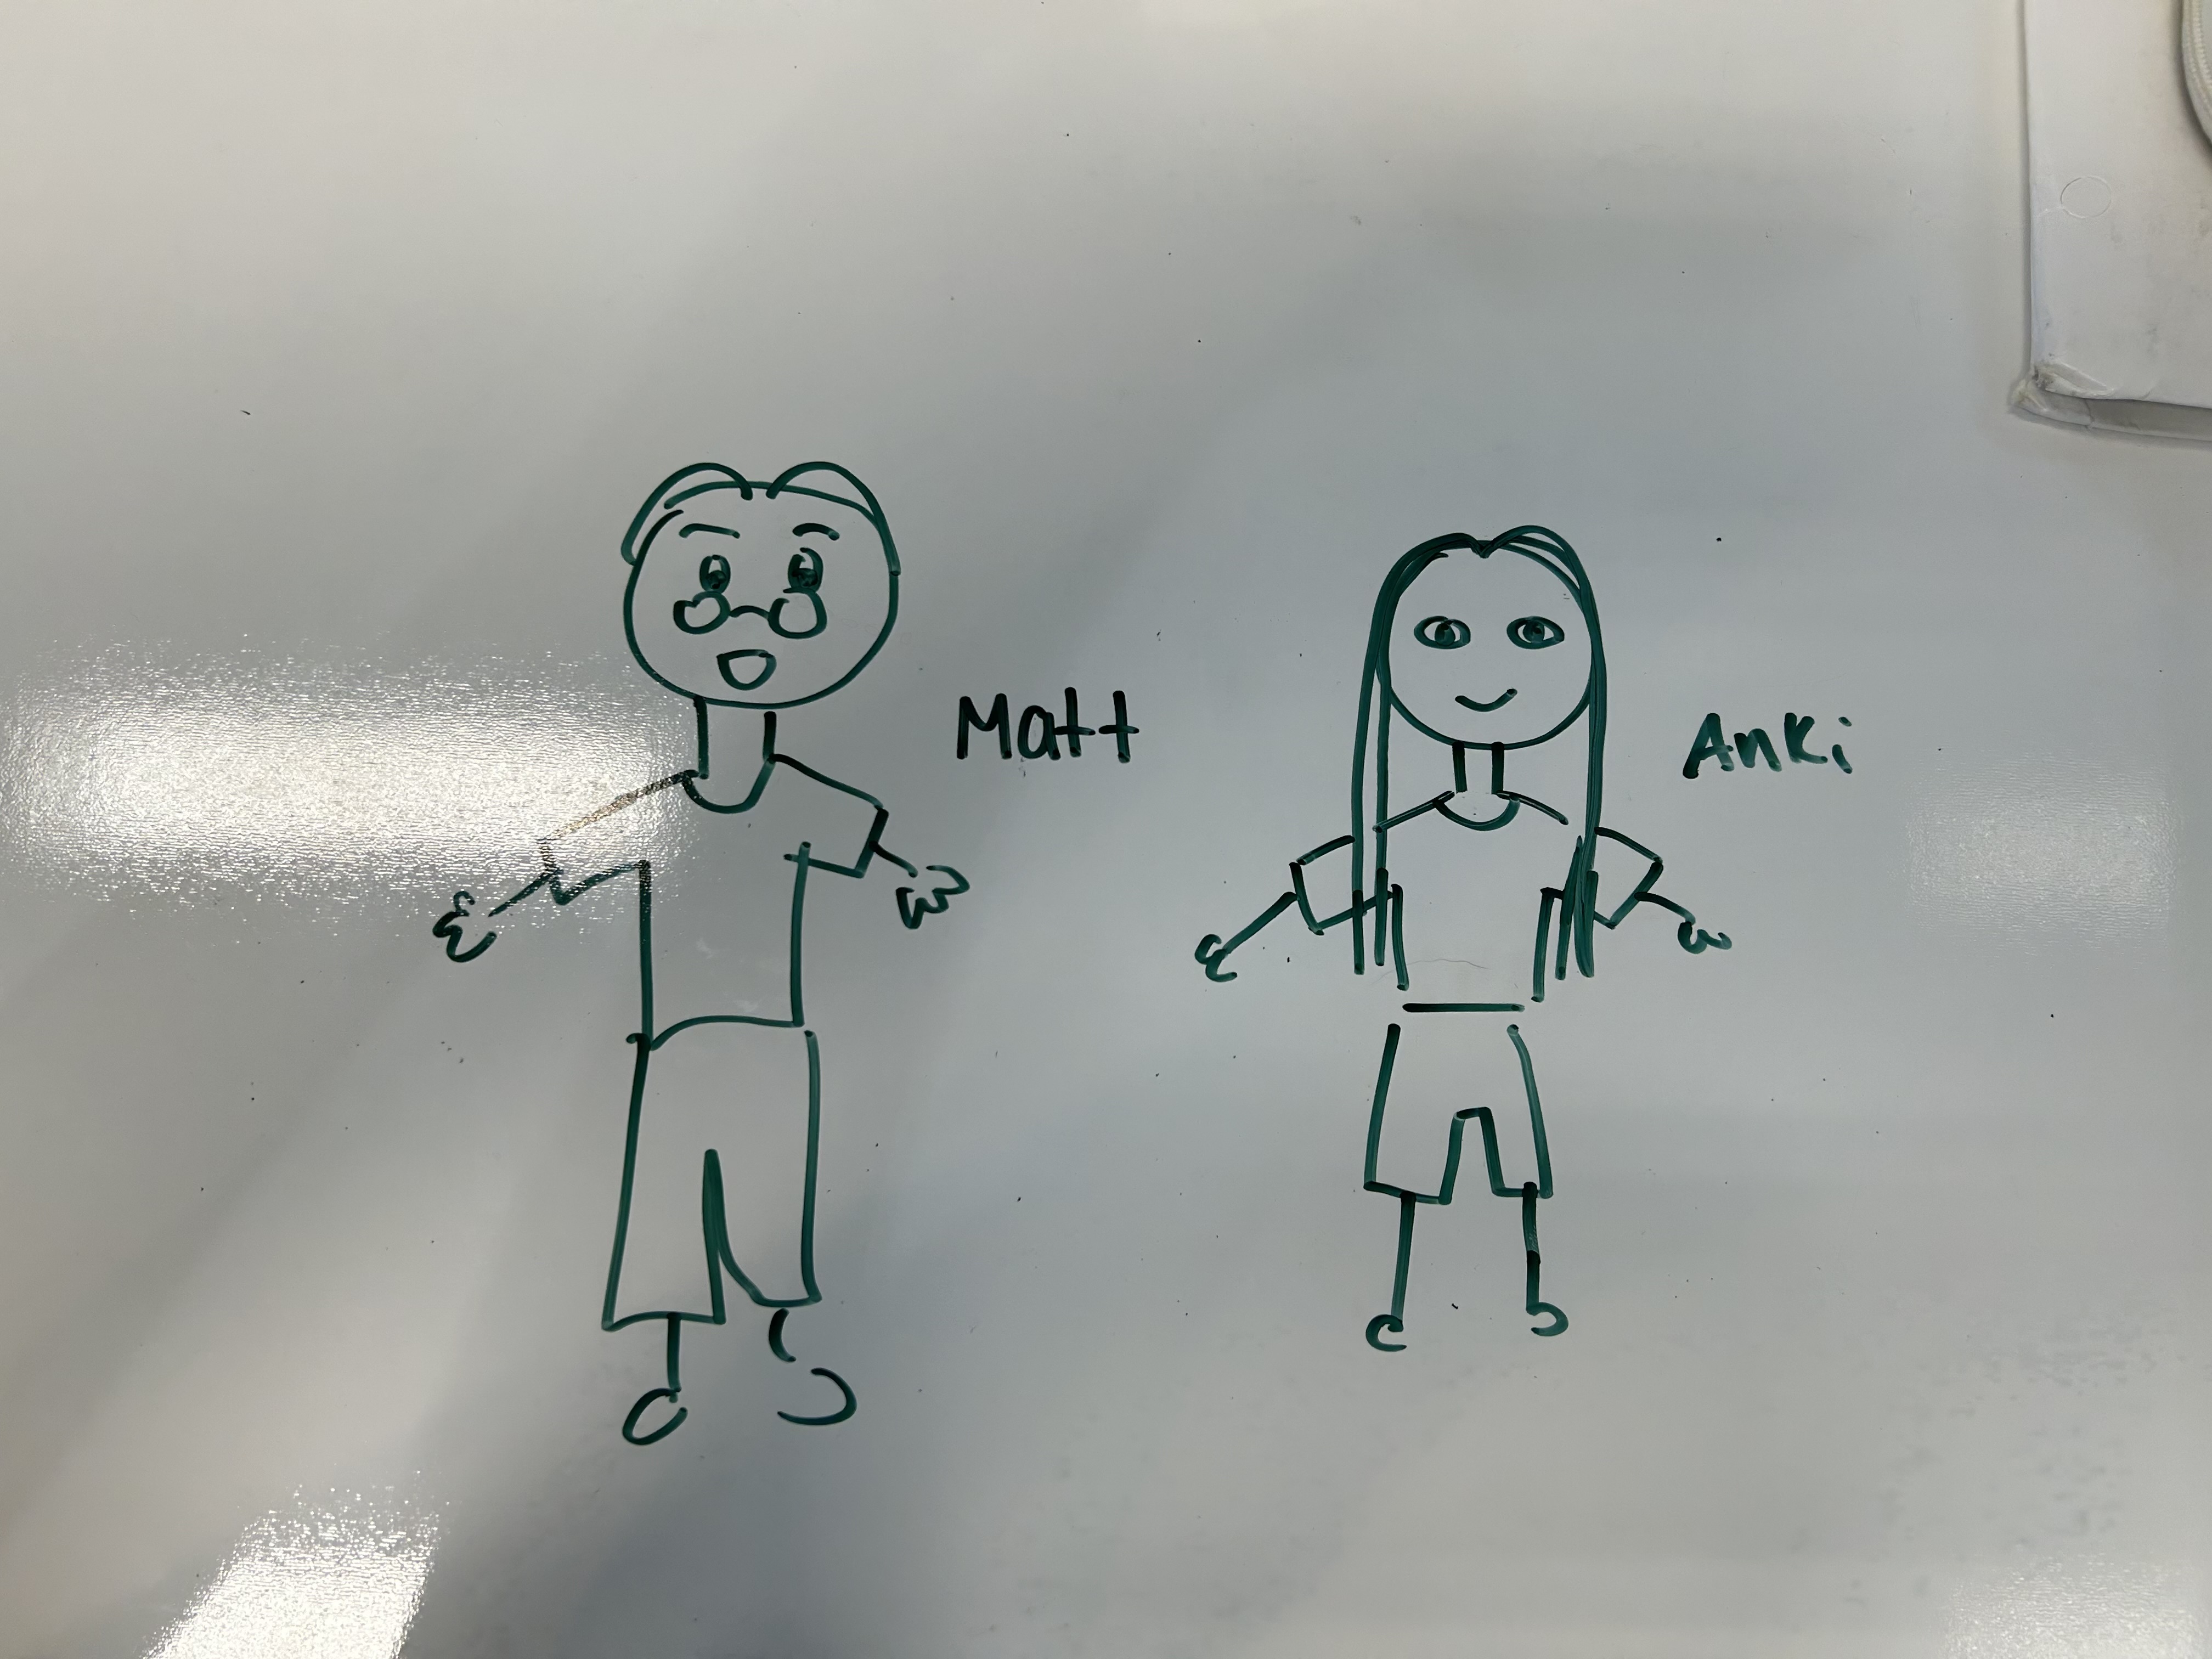 Matt
Anki